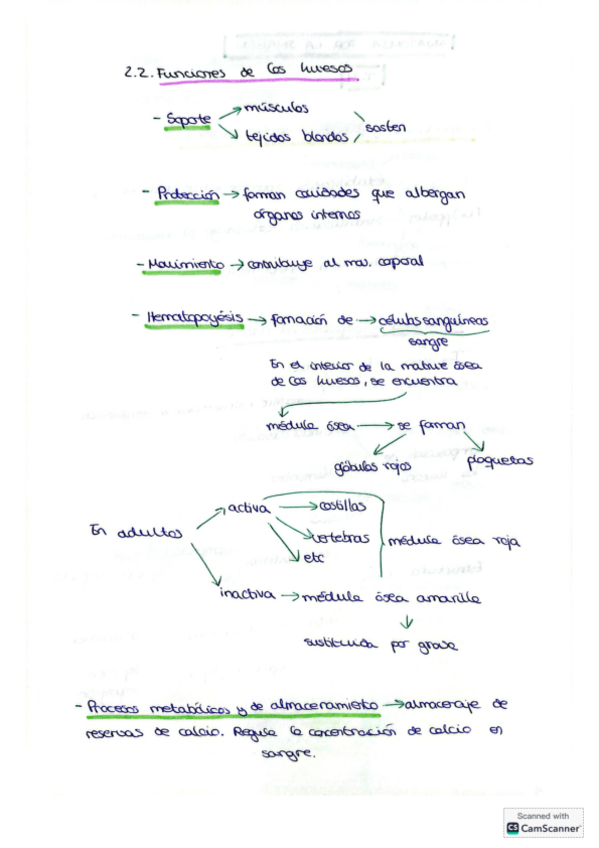 2.2. Funciones de los huesos
- Soporte → músculos
tejidos blandos
sosten
- Protección → forman cavidades que albergan
órganos internos
- Movimiento → contribuye al mov. corporal
- Hematopoyésis → formación de → células sanguíneas
sangre
En el interior de la matriz ósea
de los huesos, se encuentra
médula ósea → se forman
góbulos rojos
plaquetas
En adultos
activa → costillas
vertebras
etc
médula ósea roja
inactiva → médula ósea amarilla
sustituida por grasa
- Procesos metabólicos y de almacenamiento → almacenaje de
reservas de calcio. Regula la concentración de calcio en
sangre.
Scanned with
CS CamScanner